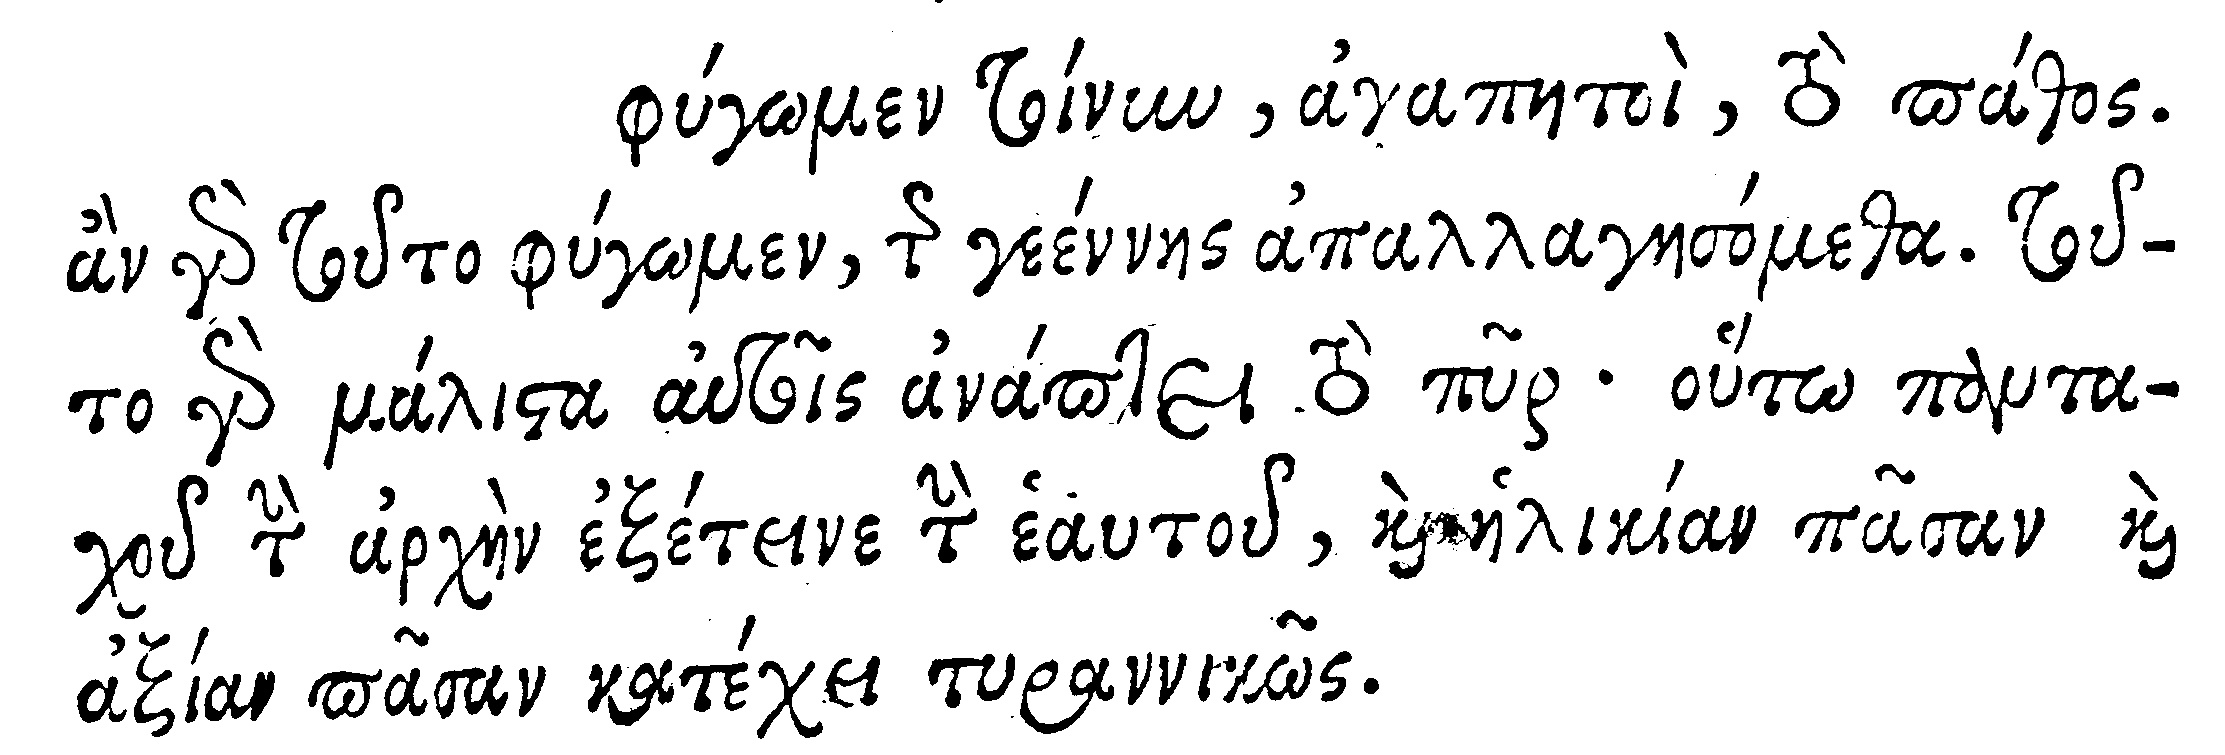 φύγωμεν τοίνυν, ἀγαπητοὶ, τὸ πάθος.
ἂν γὰρ τοῦτο φύγωμεν, τῆς γεέννης ἀπαλλαγησόμεθα. τοῦ-
το γὰρ μάλιστα αὐτοῖς ἀνάπτει τὸ πῦρ· οὕτω παντα-
χοῦ τὴν ἀρχὴν ἐξέτεινε τὴν ἑαυτοῦ, καὶ ἡλικίαν πᾶσαν καὶ
ἀξίαν πᾶσαν κατέχει τυραννικῶς.